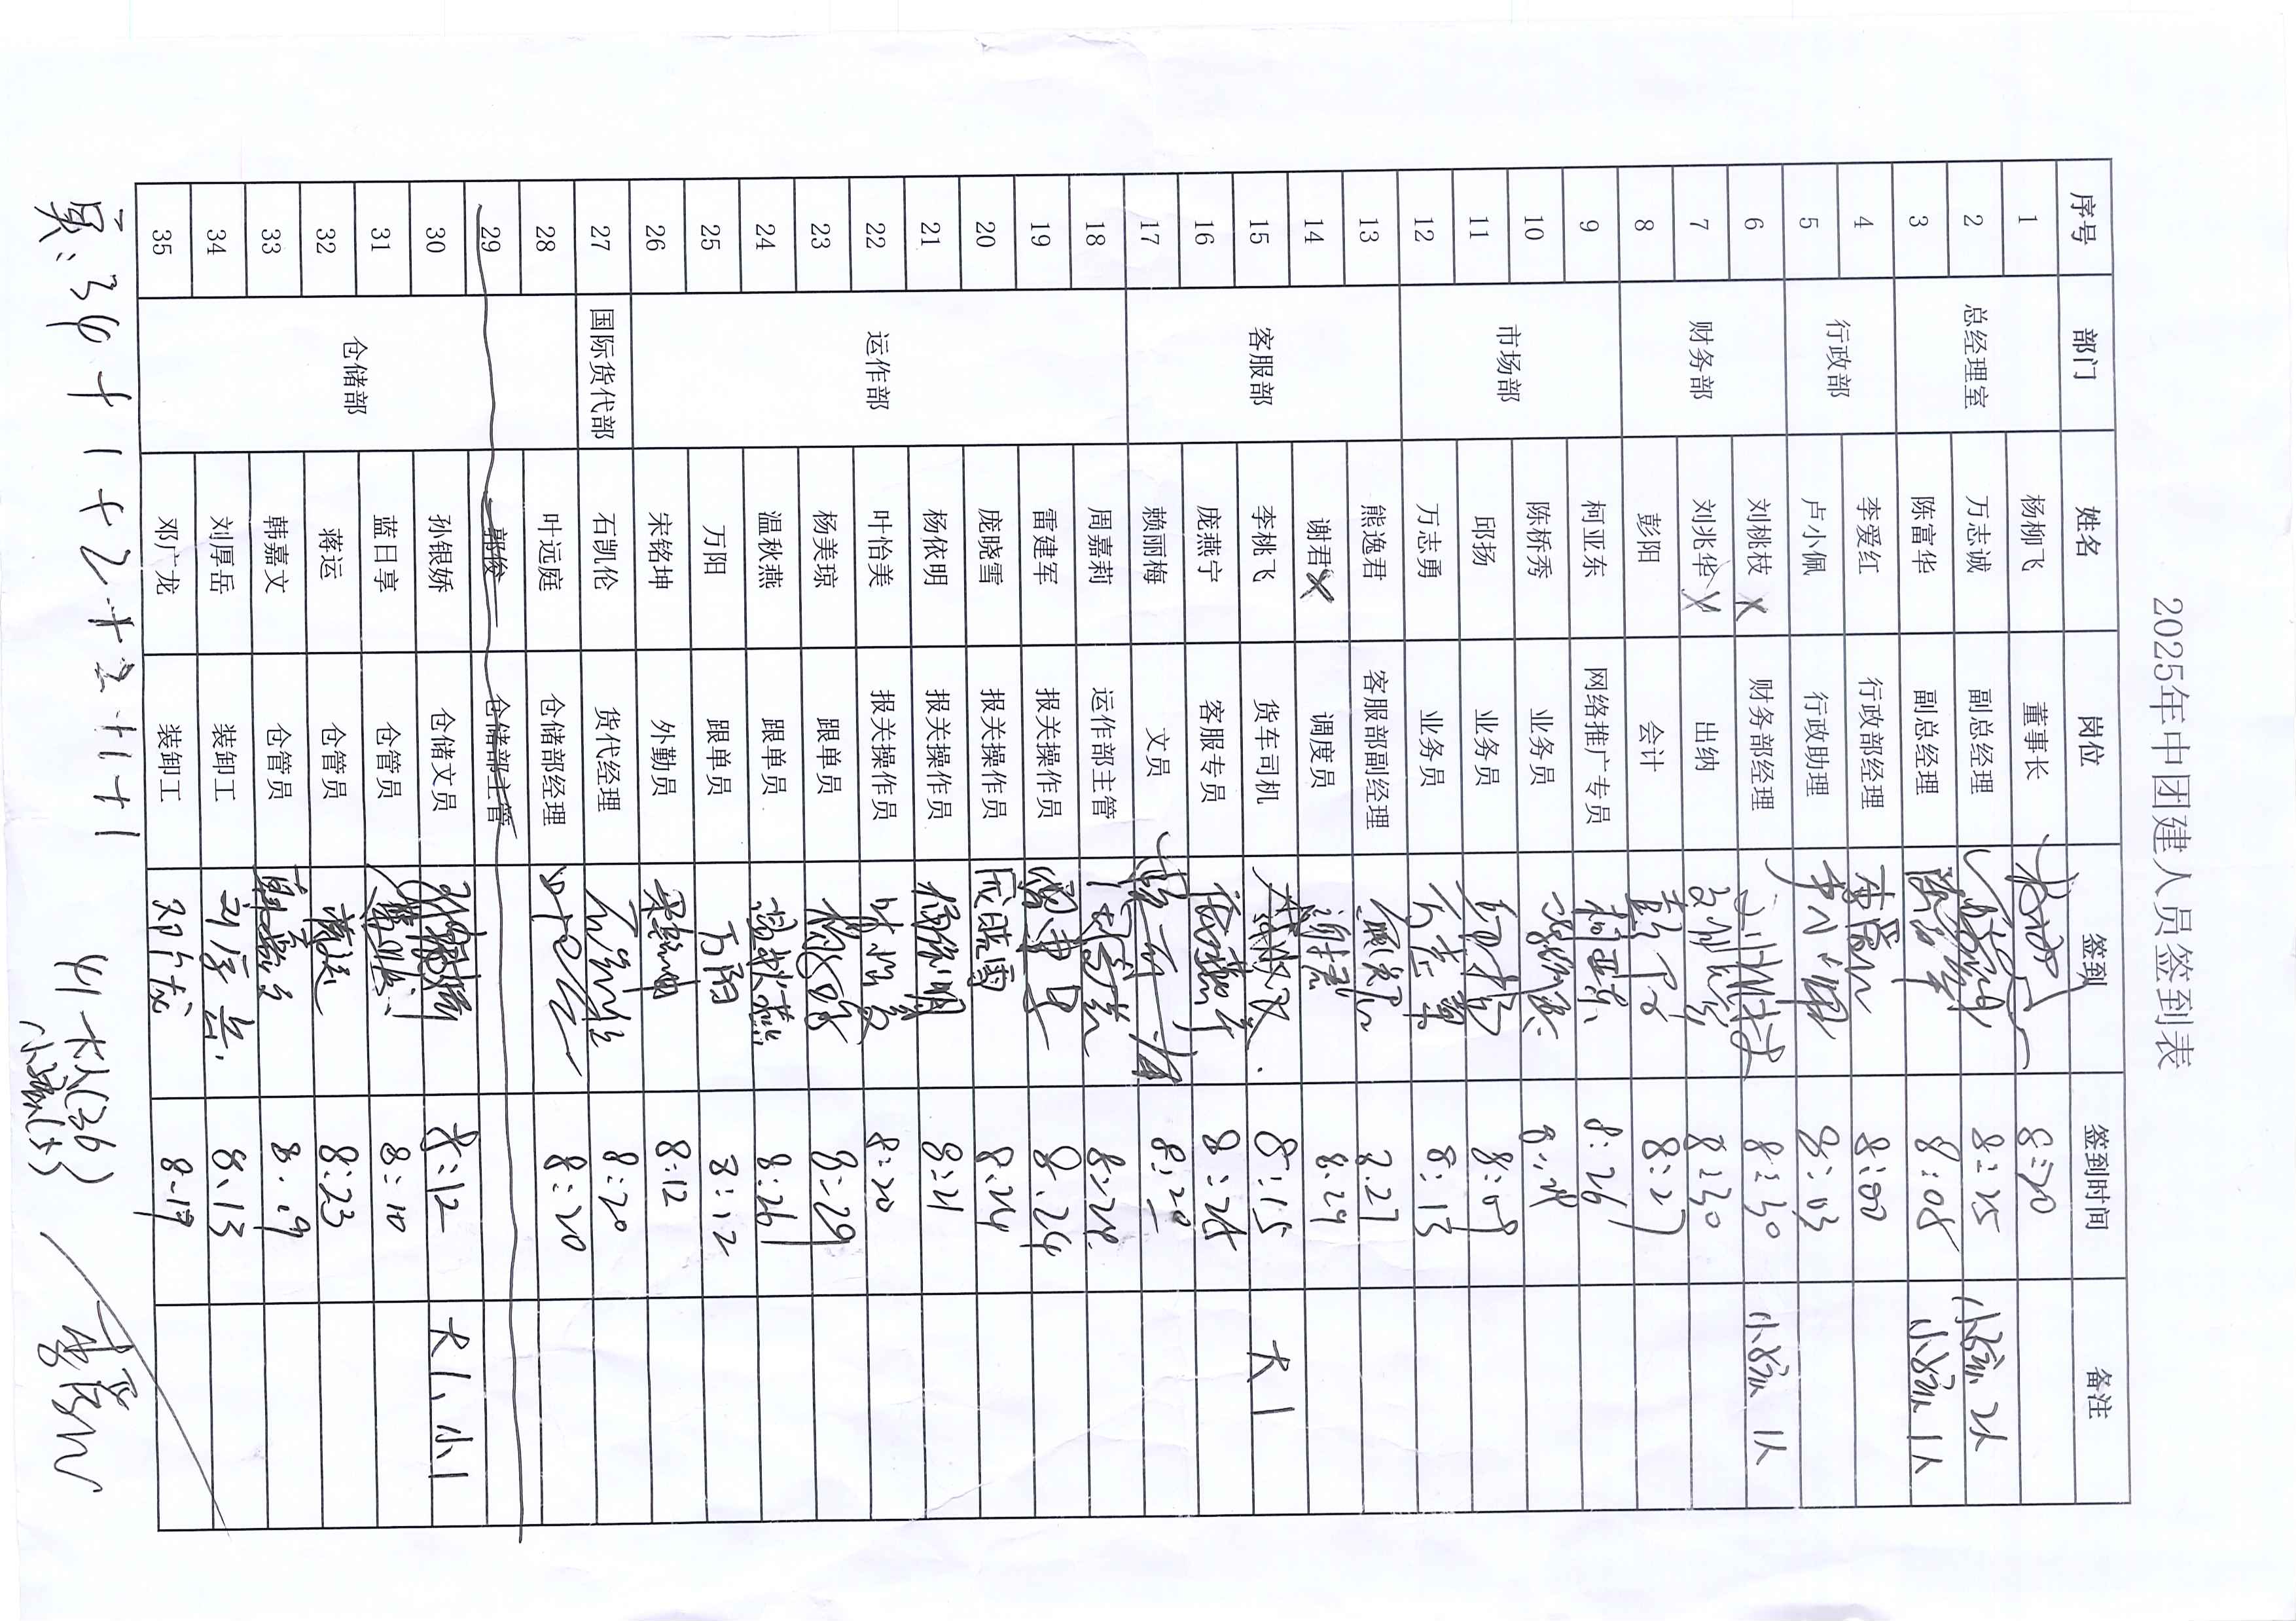 2025年年中团建人员签到表
序号 部门 姓名 岗位 签到 签到时间 备注
1 总经理室 杨柳飞 董事长 8:20
2 万志诚 副总经理 万志诚 8:25 小孩 2人
3 陈富华 副总经理 陈富华 8:08 小孩 1人
4 行政部 李爱红 行政部经理 李爱红 8:00
5 卢小佩 行政助理 卢小佩 8:03
6 财务部 刘桃枝 X 财务部经理 刘桃枝 8:30 小孩 1人
7 刘兆华 X 出纳 刘兆华 8:30
8 彭阳 会计 彭阳 8:27
9 市场部 柯亚东 网络推广专员 柯亚东 8:26
10 陈桥秀 业务员 陈桥秀
11 邱扬 业务员 8:09
12 万志勇 业务员 万志勇 8:13
13 客服部 熊逸君 客服部副经理 熊逸君 8.27
14 谢君 X 调度员 谢君 8:29
15 李桃飞 货车司机 李桃飞 8:15 大1
16 庞燕宁 客服专员 庞燕宁 8:28
17 赖丽梅 文员 8:20
18 运作部 周嘉莉 运作部主管 周嘉莉 8:28
19 雷建军 报关操作员 雷建军 8:24
20 庞晓雪 报关操作员 庞晓雪 8:24
21 杨依明 报关操作员 杨依明 8:21
22 叶怡美 报关操作员 叶怡美 8:20
23 杨美琼 跟单员 杨美琼 8:29
24 温秋燕 跟单员 温秋燕 8:26
25 万阳 跟单员 万阳 8:12
26 宋铭坤 外勤员 宋铭坤 8:12
27 国际货代部 石凯伦 货代经理 石凯伦 8:20
28 仓储部 叶远庭 仓储部经理 8:20
29 郭俊 仓储部主管
30 孙银娇 仓储文员 孙银娇 8:12 大1、小1
31 蓝日享 仓管员 蓝日享 8:10
32 蒋运 仓管员 蒋运 8:23
33 韩嘉文 仓管员 韩嘉文 8:19
34 刘厚岳 装卸工 刘厚岳 8:13
35 邓广龙 装卸工 邓广龙 8:17
实:34+1+2+2+1+1 41 大(36)
小孩(5) 李爱红